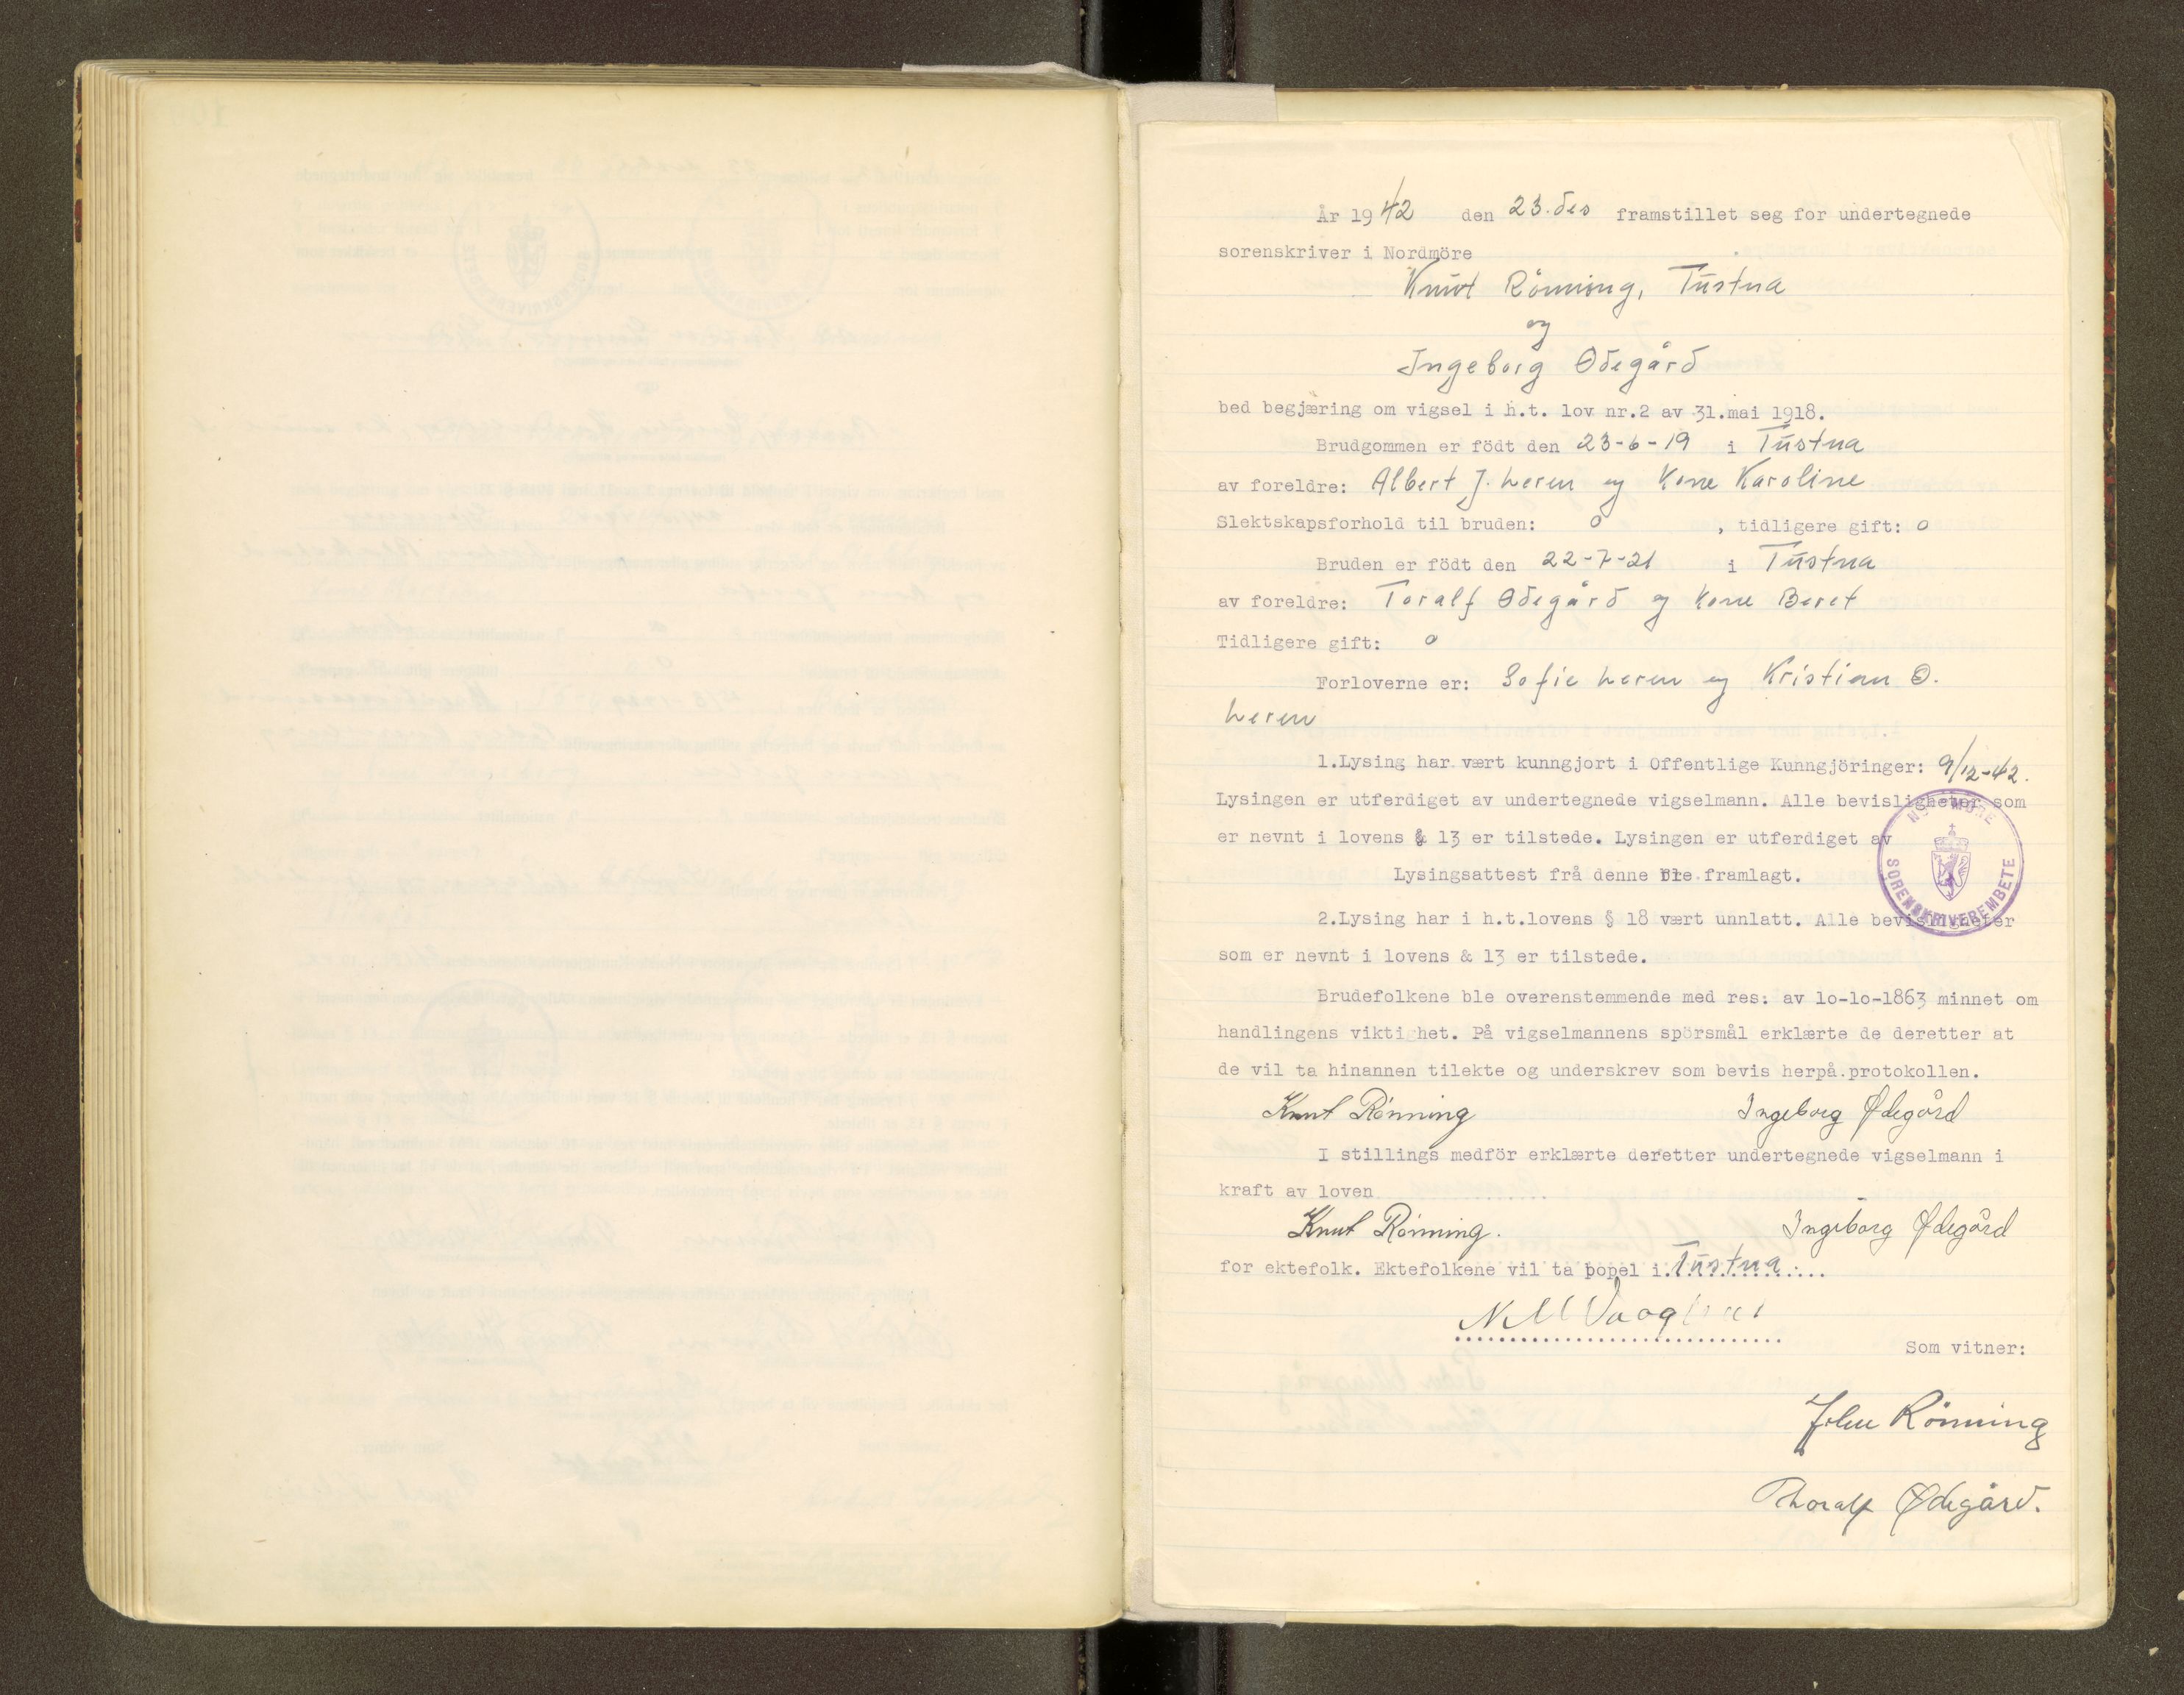 År 1942 den 23. des framstillet seg for undertegnede
sorenskriver i Nordmöre
Knut Rönning, Tustna
og
Ingeborg Ødegård
bed begjæring om vigsel i h.t. lov nr.2 av 31.mai 1918.
Brudgommen er födt den 23-6-19 i Tustna
av foreldre: Albert J. Leren og Kone Karoline
Slektskapsforhold til bruden: o , tidligere gift: o
Bruden er födt den 22-7-21 i Tustna
av foreldre: Toralf Ødegård og Kone Beret
Tidligere gift: o
Forloverne er: Sofie Leren og Kristian O.
Leren
1.Lysing har vært kunngjort i Offentlige Kunngjöringer: 9/12-42.
Lysingen er utferdiget av undertegnede vigselmann. Alle bevisligheter som
er nevnt i lovens & 13 er tilstede. Lysingen er utferdiget av
Lysingsattest frå denne ble framlagt.
NORDMÖRE
SORENSKRIVEREMBETE
2.Lysing har i h.t.lovens § 18 vært unnlatt. Alle bevisligheter
som er nevnt i lovens & 13 er tilstede.
Brudefolkene ble overenstemmende med res: av 10-10-1863 minnet om
handlingens viktighet. På vigselmannens spörsmål erklærte de deretter at
de vil ta hinannen tilekte og underskrev som bevis herpå.protokollen.
Knut Rönning Ingeborg Ødegård
I stillings medför erklærte deretter undertegnede vigselmann i
kraft av loven
Knut Rönning. Ingeborg Ødegård
for ektefolk. Ektefolkene vil ta popel i Tustna
Som vitner:
John Rönning
Thoralf Ødegård.